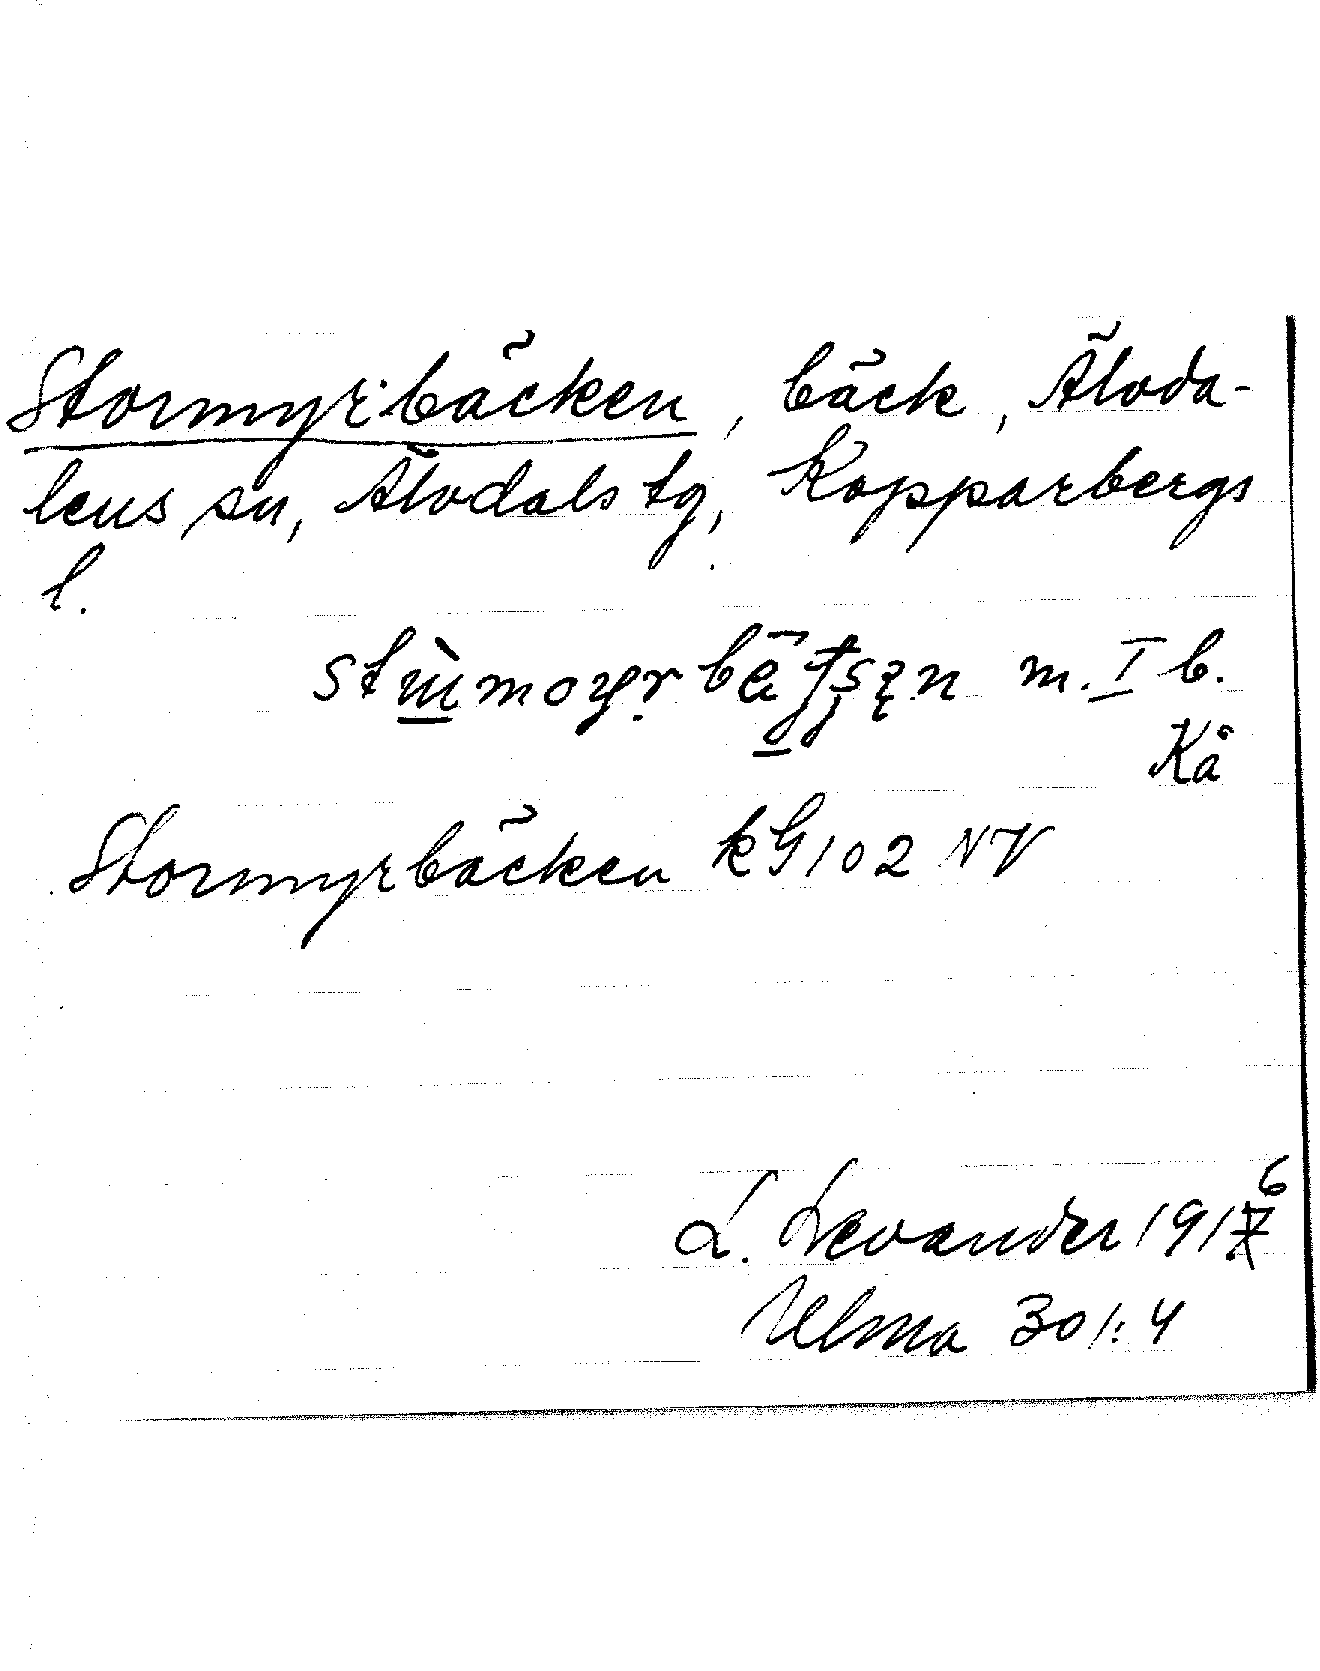 Stormyrbäcken, bäck, Älvda-
lens sn, Älvdals tg, Kopparbergs
l.
m. I b.
Kå
Stormyrbäcken kG102 NV
L. Levander 1916
Ulma 301:4